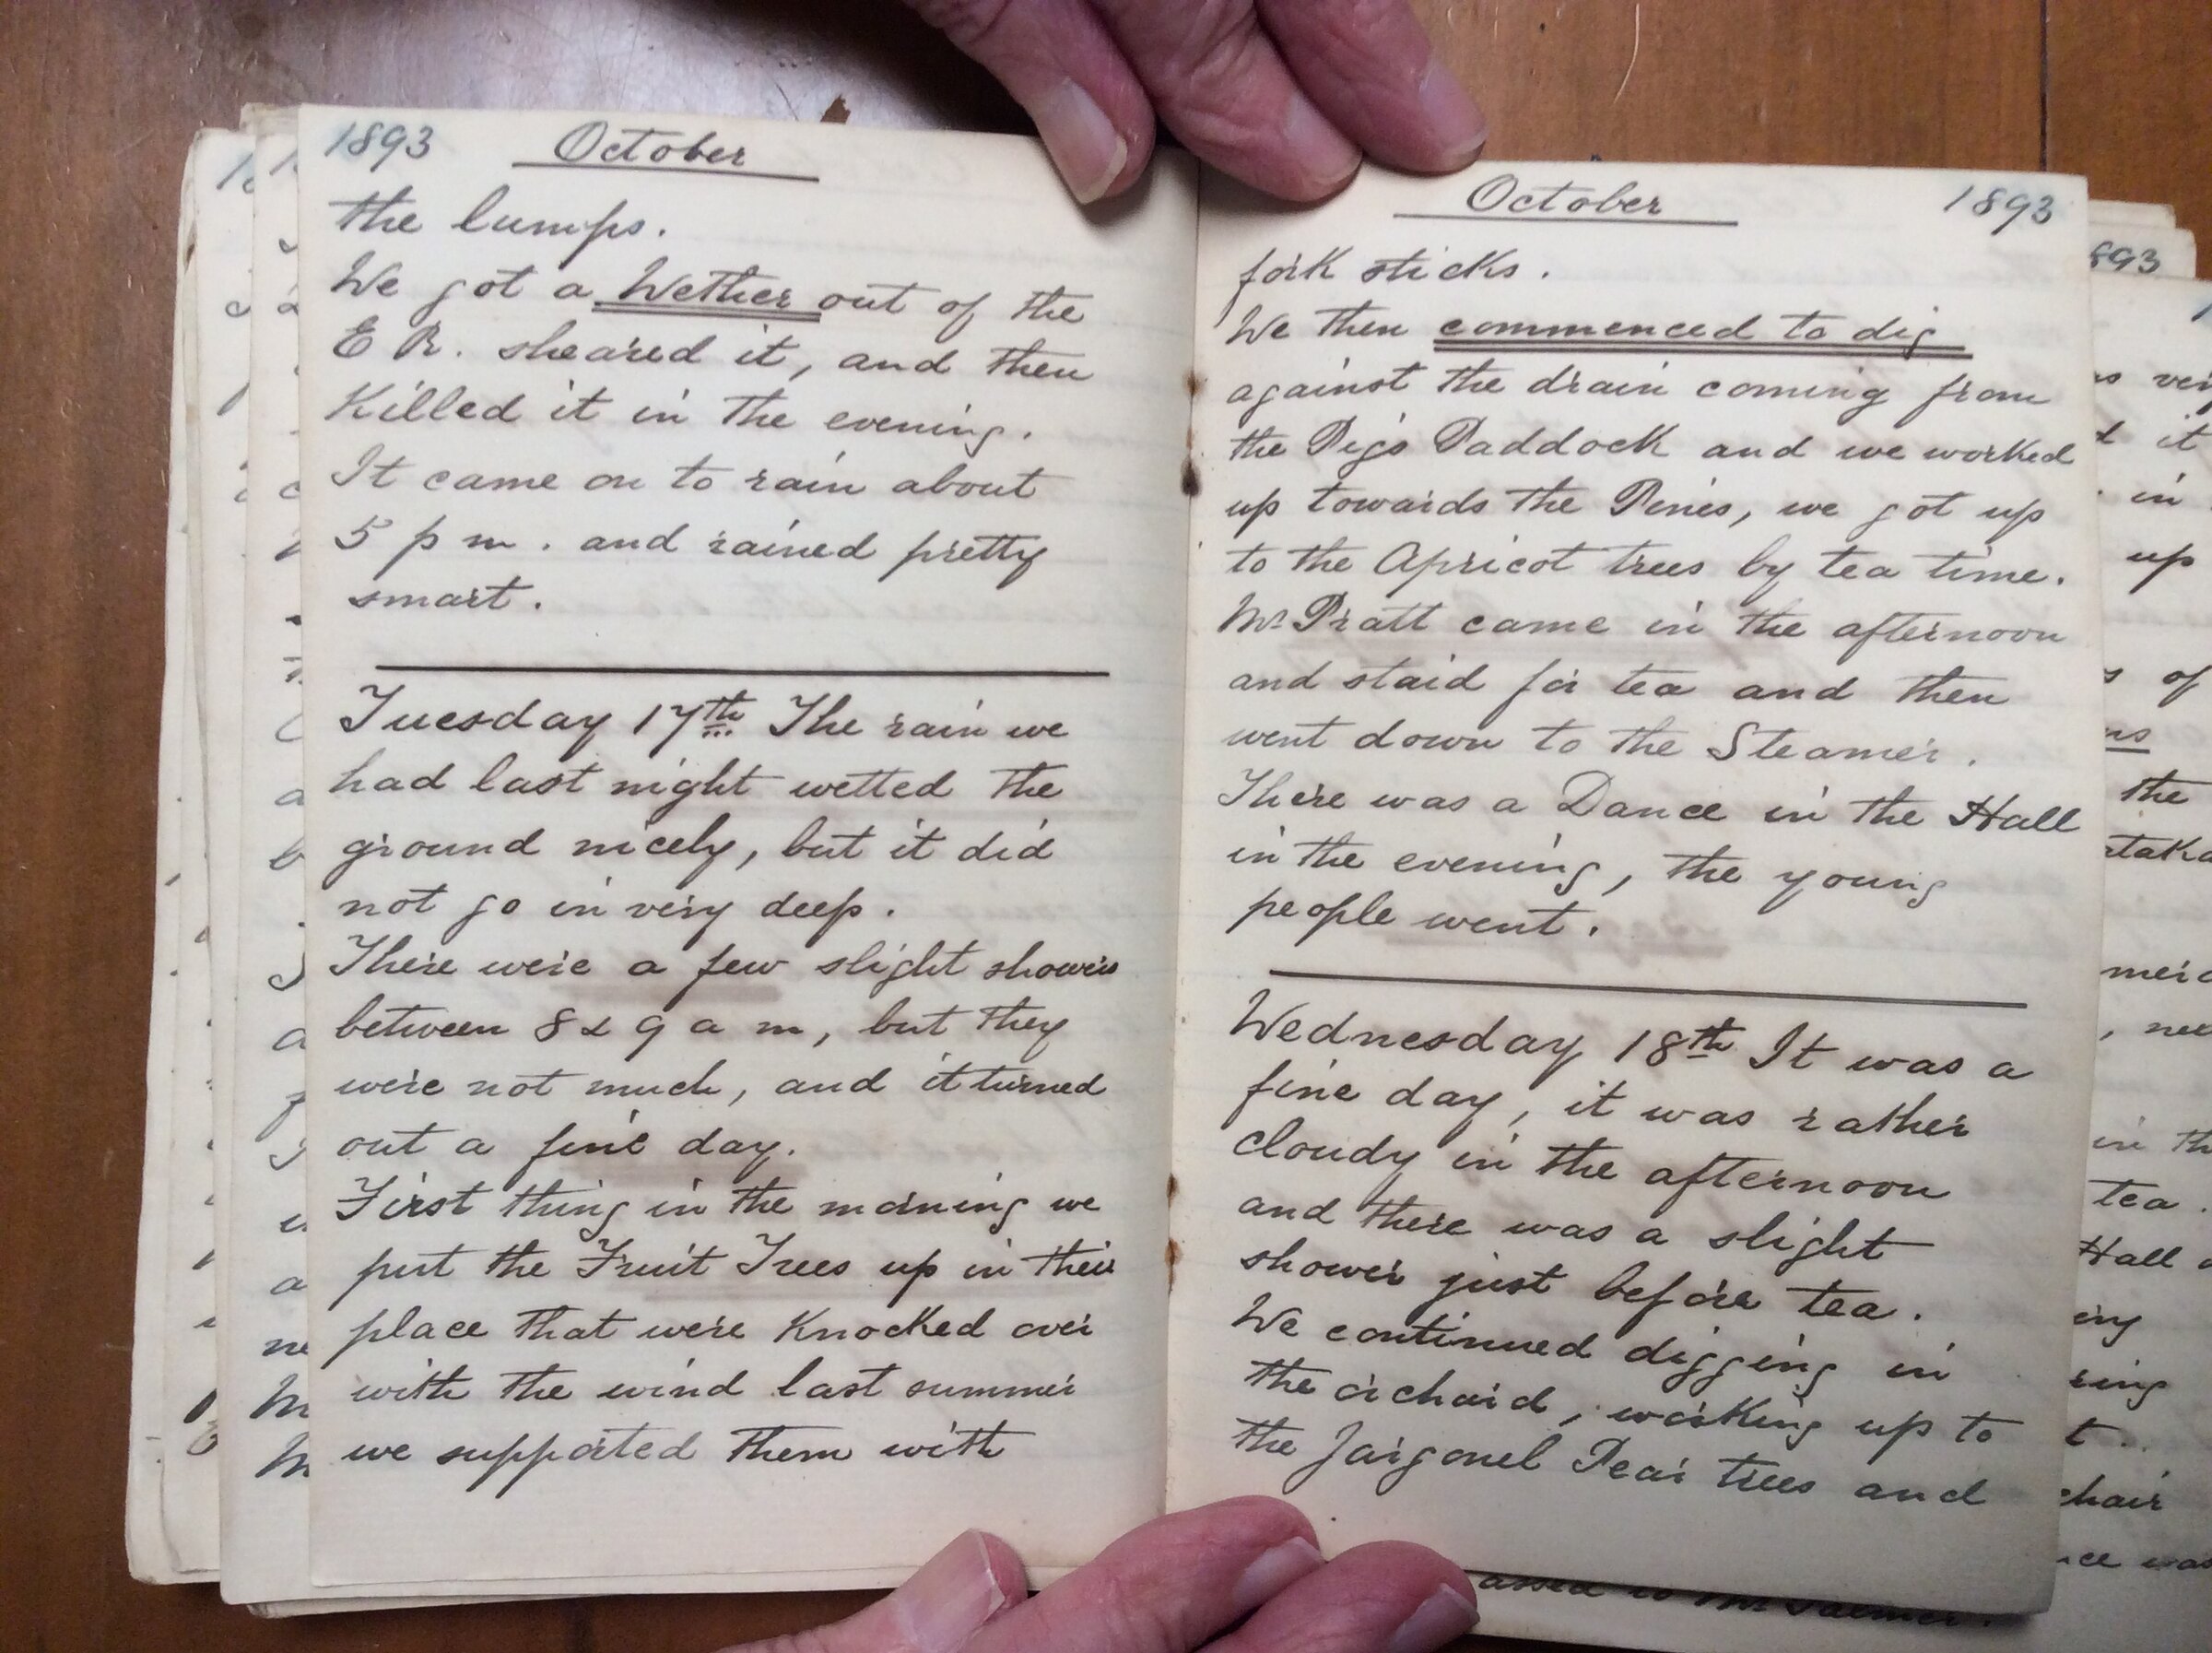 1893 October
the lumps.
We got a Wether out of the
E R. sheared it, and then
Killed it in the evening.
It came on to rain about
5 p m. and rained pretty
smart.
Tuesday 17th The rain we
had last night wetted the
ground nicely, but it did
not go in very deep.
There were a few slight showers
between 8 & 9 a m, but they
were not much, and it turned
out a fine day.
First thing in the morning we
put the Fruit Trees up in their
place that were Knocked over
with the wind last summer
we supported them with
October 1893
fork sticks.
We then commenced to dig
against the drain coming from
the Pigs Paddock and we worked
up towards the Pines, we got up
to the Apricot trees by tea time.
Mr Pratt came in the afternoon
and staid for tea and then
went down to the Steamer.
There was a Dance in the Hall
in the evening, the young
people went.
Wednesday 18th It was a
fine day, it was rather
cloudy in the afternoon
and there was a slight
shower just before tea.
We continued digging in
the orchard, working up to
the Jargonel Pear trees and
893
it
in
up
of
the
in th
tea.
Hall